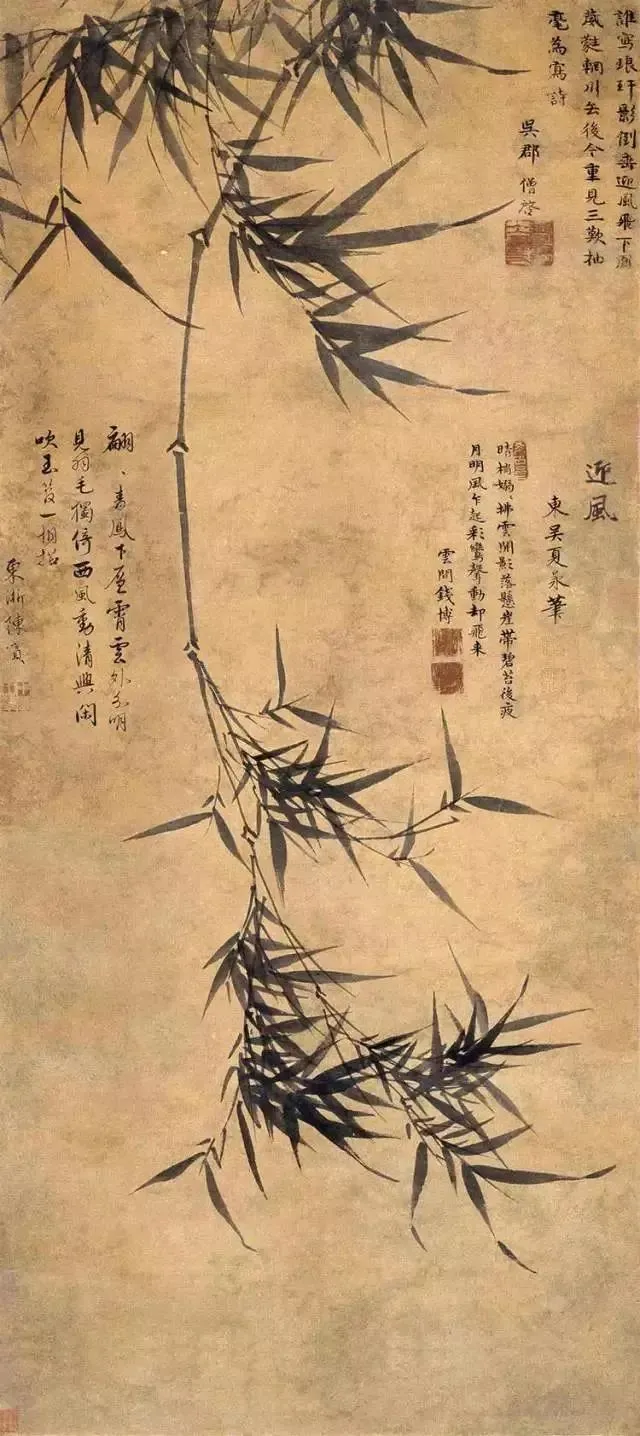 誰寫琅玕影倒垂迎風飛下
葳蕤輞川去後今重見三歎抽
毫為寫詩
吳郡僧啓
迎風
東吳夏㫤筆
晴梢嫋、拂雲開影落懸崖帶碧苔後夜
月明風乍起彩鸞聲動却飛來
雲間錢博
翩、青鳳下層霄雲外分明
見羽毛獨倚西風動清興閑
吹玉一相招
東浙陳